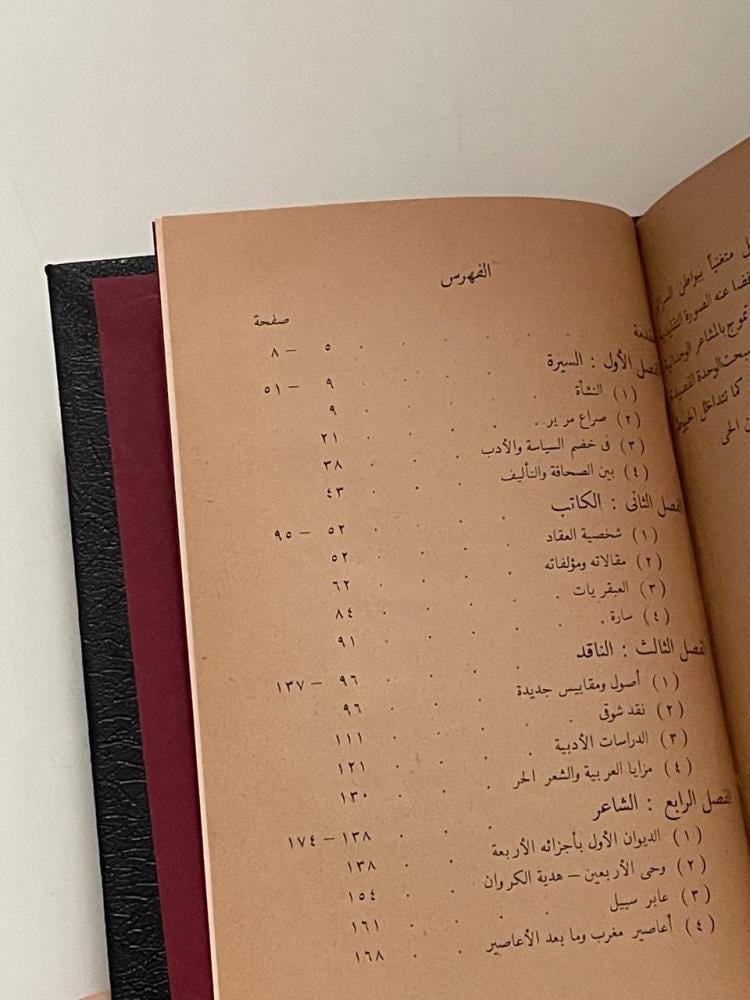 الفهرس
صفحة
مقدمة . . . . . ٥ – ٨
الفصل الأول : السيرة . . . . ٩ – ٥١
(١) النشأة . . . . ٩
(٢) صراع مرير . . . . ٢١
(٣) فى خضم السياسة والأدب . . . ٣٨
(٤) بين الصحافة والتأليف . . . ٤٣
الفصل الثانى : الكاتب . . . ٥٢ – ٩٥
(١) شخصية العقاد . . . . ٥٢
(٢) مقالاته ومؤلفاته . . . . ٦٢
(٣) العبقريات . . . . ٨٤
(٤) سارة . . . . ٩١
الفصل الثالث : الناقد . . . ٩٦ – ١٣٧
(١) أصول ومقاييس جديدة . . . ٩٦
(٢) نقد شوقى . . . . ١١١
(٣) الدراسات الأدبية . . . ١٢١
(٤) مزايا العربية والشعر الحر . . . ١٣٠
الفصل الرابع : الشاعر . . . ١٣٨ – ١٧٤
(١) الديوان الأول بأجزائه الأربعة . . ١٣٨
(٢) وحى الأربعين – هدية الكروان . . ١٥٤
(٣) عابر سبيل . . . . ١٦١
(٤) أعاصير مغرب وما بعد الأعاصير . . ١٦٨
متغنياً ببواطن
عنه الصورة
تموج بالمشاعر الوجدانية
الوحدة القصيدة
كما تتداخل الخيوط
الحى